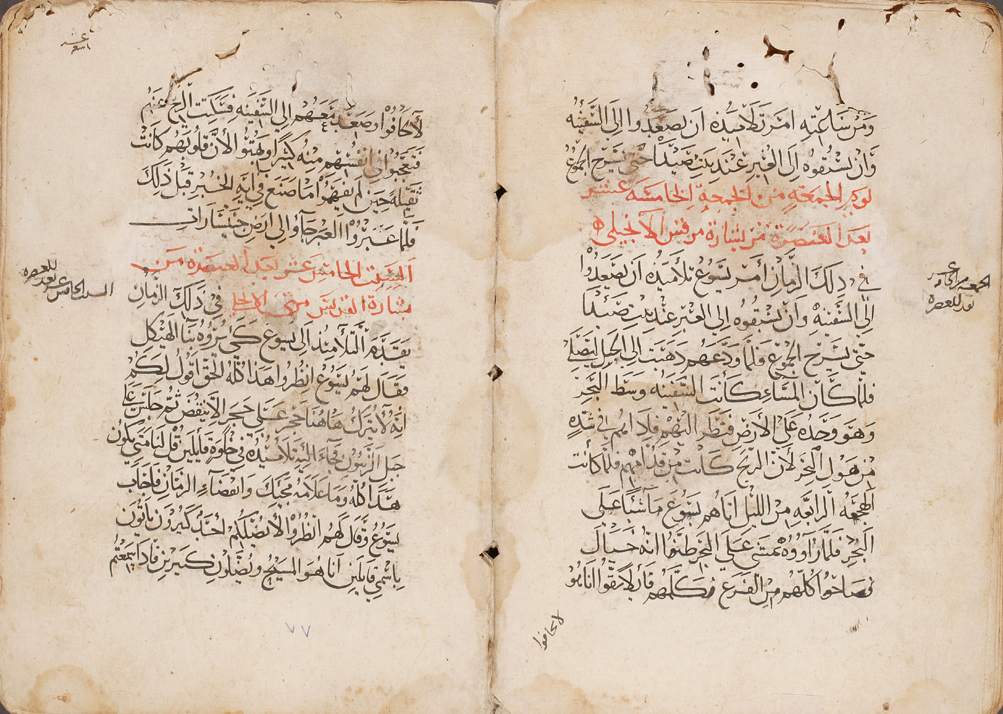 ومن ساعته امر تلاميذه ان يصعدوا الى السفينه
وان يسبقوه الى العبر عند بيت صيدا حتى يسرح الجموع
يوم الجمعه من الجمعه الخامسه عشر
بعد العنصره من بشارة مرقس الانجيلي
في ذلك الزمان امر يسوع تلاميذه ان يصعدوا
الى السفينه وان يسبقوه الى العبر عند بيت صيدا
حتى يسرح الجموع فلما ودعهم ذهب الى الجبل ليصلي
فلما كان المساء كانت السفينه وسط البحر
وهو وحده على الارض فنظر اليهم فاذا هم في شده
من هول البحر لان الريح كانت من قدامهم فلما كانت
الهجعه الرابعه من الليل اتاهم يسوع ماشيا على
البحر فلما راووه يمشي على البحر ظنوا انه خيال
فصاحوا كلهم من الفزع فكلمهم قايلا ثقوا انا هو
لا تخافوا
الجمعه
بعد العنصره
لا تخافوا وصعد معهم الى السفينه فسكتت الريح عنهم
فتعجبوا في انفسهم منه كثيرا وبهتوا لان قلوبهم كانت
ثقيله حين لم يفهموا ما صنع في ايه الخبز قبل ذلك
فلما عبروا العبر جاوا الى ارض جنيسارات
السبت الخامس عشر بعد العنصره من
بشارة القديس متى الانجيلي في ذلك الزمان
تقدم التلاميذ الى يسوع كي يروه بنا الهيكل
فقال لهم يسوع انظروا هذا كله الحق اقول لكم
انه لا يترك هاهنا حجر على حجر الا ينقض ثم جلس على
جبل الزيتون فجاء اليه تلاميذه في خلوة قايلين قل لنا متى يكون
هذا كله وما علامة مجيك وانقضاء الزمان فاجاب
يسوع وقال لهم انظروا لا يضلكم احد كثيرون ياتون
باسمي قايلين انا هو المسيح ويضلون كثيرين فاذا سمعتم
السبت الخامس عشر
بعد العنصره
٧٧